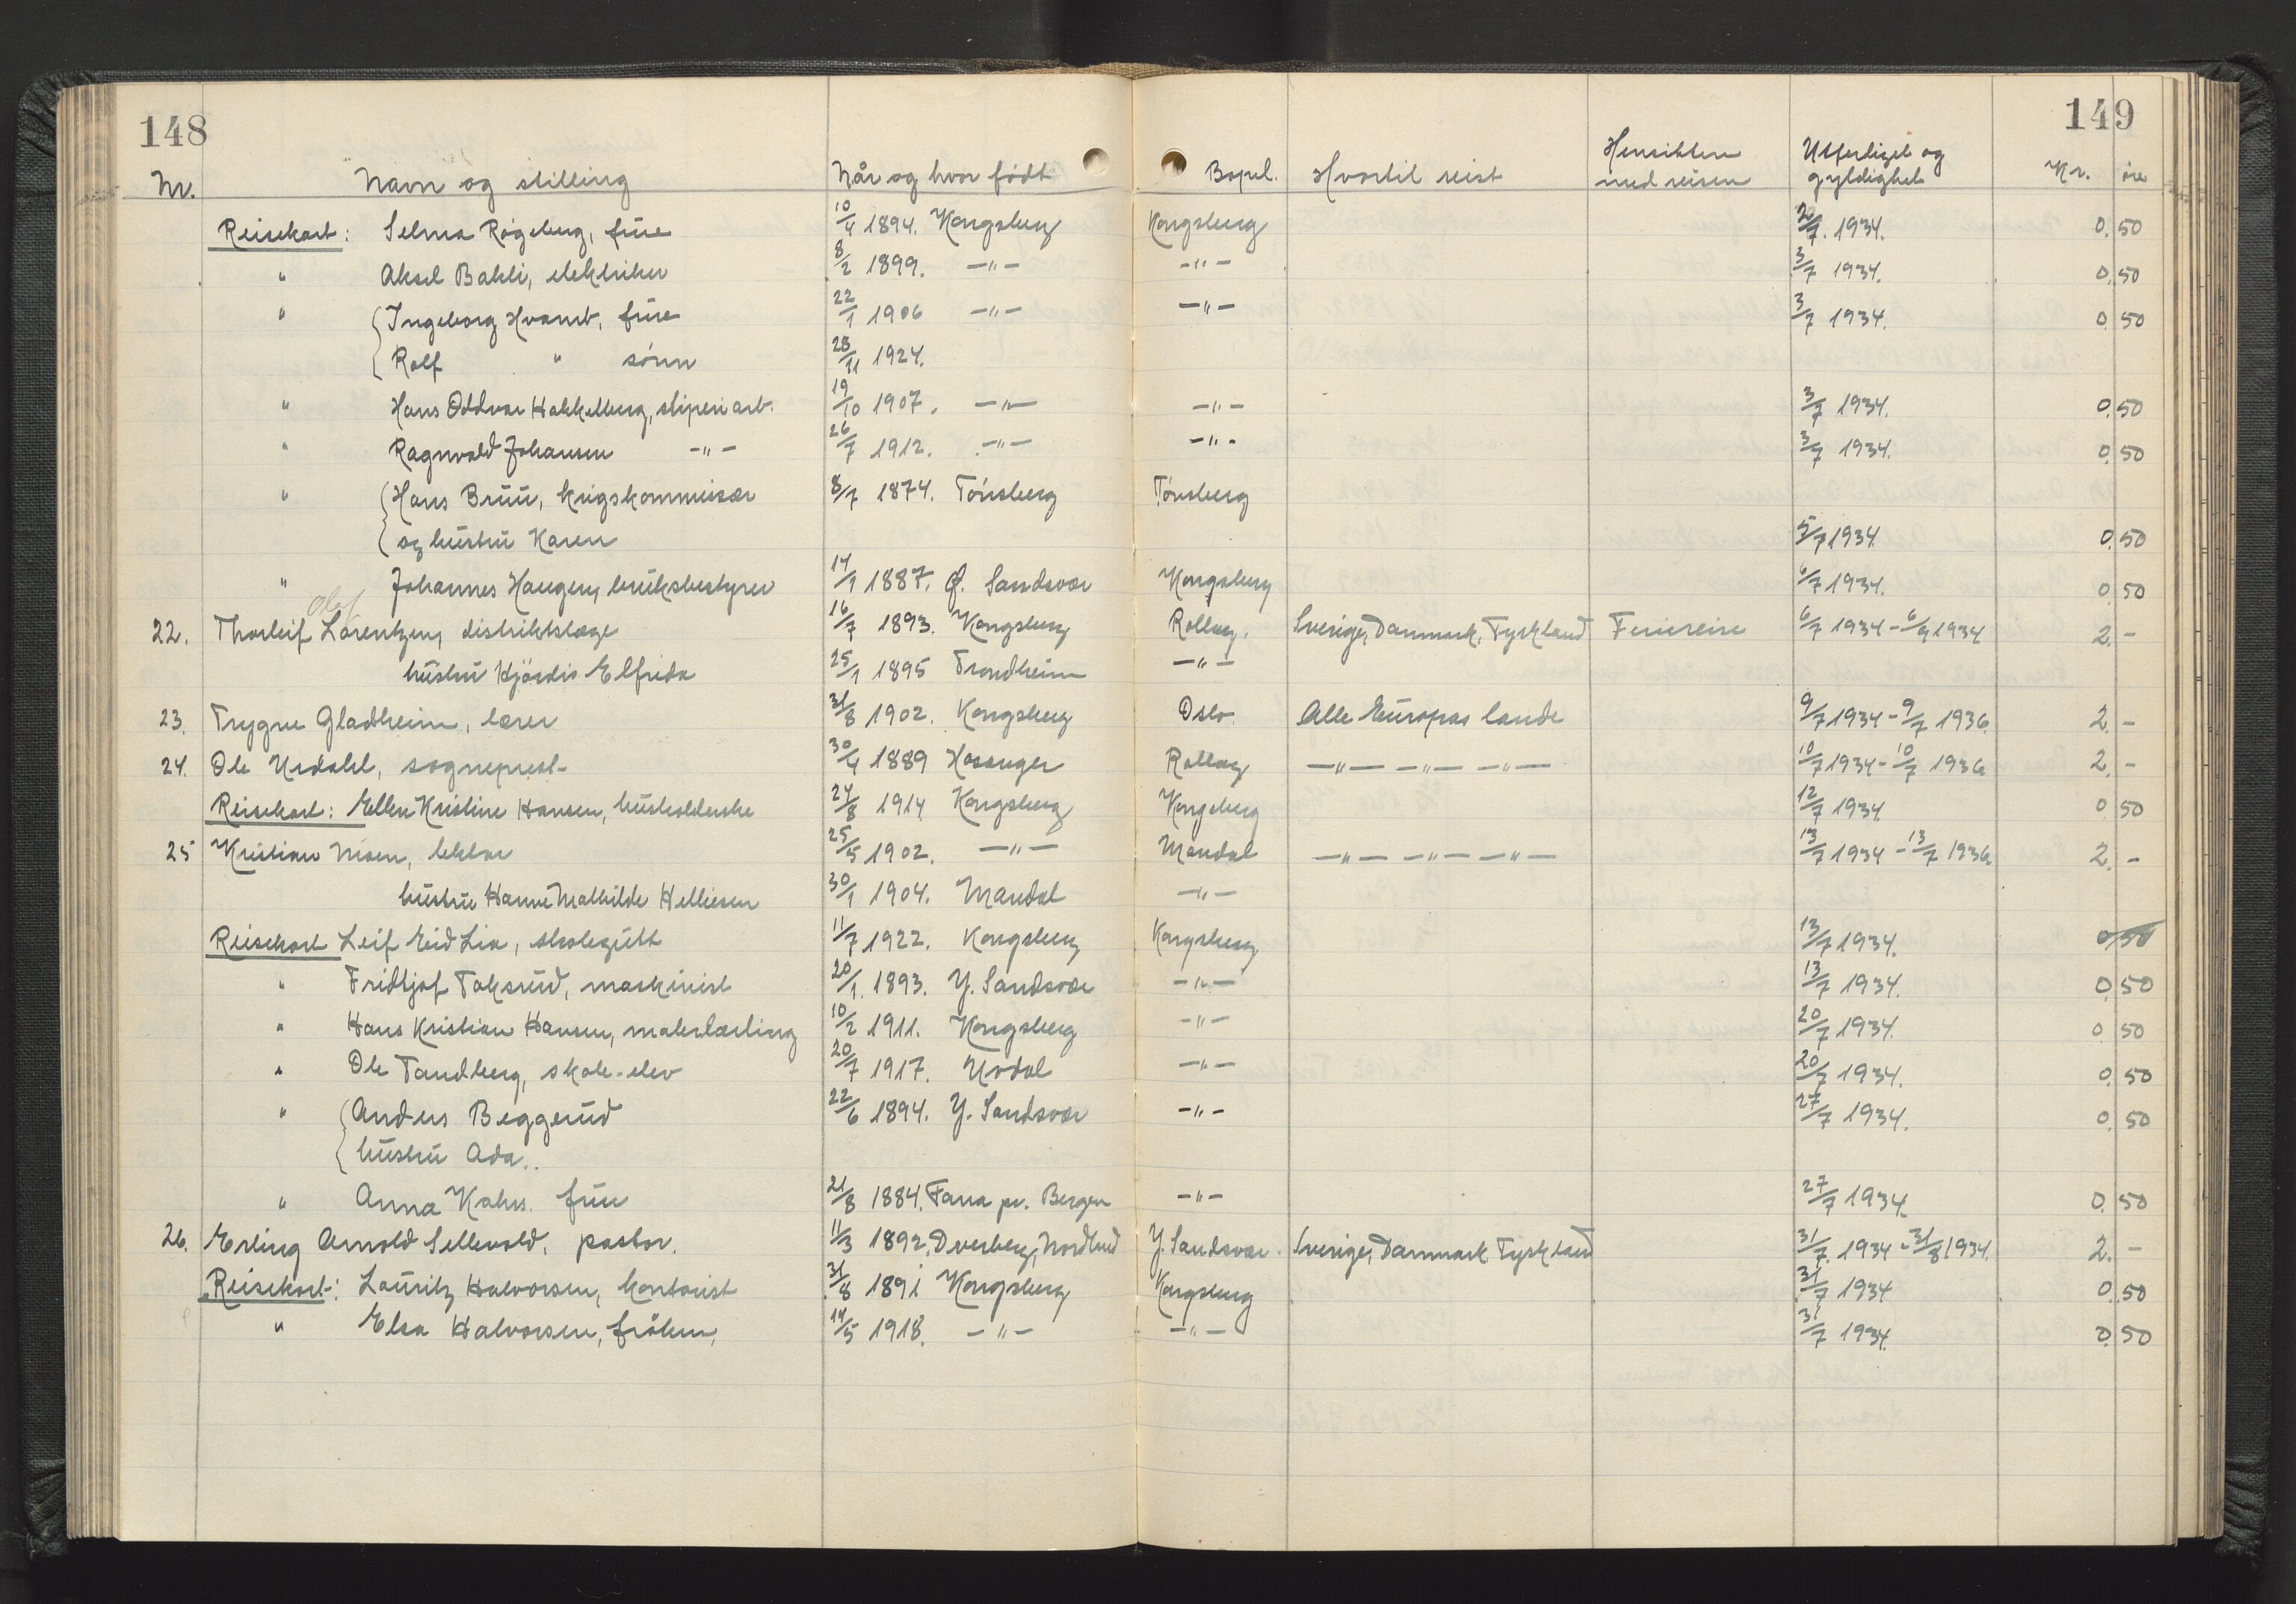 148
149
Nr. Navn og stilling Når og hvor født Bopel. Hvortil reist Hensikten med reisen Utferdiget og gyldighet Kr. øre
Reisekort: Selma Røgeberg, frue 10/4 1894. Kongsberg Kongsberg 1934. 0.50
" Aksel Bakli, elektriker 8/2 1899. -"- -"- 3/7 1934. 0.50
" Ingeborg Hvamb, frue 22/1 1906 -"- -"- 3/7 1934. 0.50
Rolf " sønn 1924.
" Hans Oddvar Hakkelberg, sliperiarb. 19/10 1907. -"- -"- 3/7 1934. 0.50
" Ragnvald Johansen -"- 26/7 1912. -"- -"- 3/7 1934. 0.50
" Hans Bruu, krigskommissær 8/7 1874. Tønsberg Tønsberg
og hustru Karen 5/7 1934. 0.50
" Johannes Haugen, bruksbestyrer 14/1 1887. Ø. Sandsvær Kongsberg 6/7 1934. 0.50
Olaf
22. Thorleif Lorentzen, distriktslæge 16/7 1893. Kongsberg Rollag. Sverige, Danmark, Tyskland Feriereise 6/7 1934 - 6/9 1934 2.-
hustru Hjørdis Elfrida 25/1 1895 Trondheim -"-
23. Trygve Gladheim, lærer 31/8 1902. Kongsberg Oslo. Alle Europas lande 9/7 1934 - 9/7 1936. 2.-
24. Ole Urdahl, sogneprest 30/4 1889 Hosanger Rollag -"- -"- -"- 10/7 1934 - 10/7 1936 2.-
Reisekort: Ellen Kristine Hansen, husholderske 24/8 1914 Kongsberg Kongsberg 12/7 1934 0.50
25 Kristian Nisen, lektor 25/5 1902. -"- Mandal -"- -"- -"- 13/7 1934 - 13/7 1936 2.-
hustru Hanne Mathilde Helliesen 30/1 1904. Mandal -"-
Reisekort Leif Eid Lia, skolegutt 11/7 1922. Kongsberg Kongsberg 13/7 1934. 0.50
" Fridtjof Taksrud, maskinist 20/1. 1893. Y. Sandsvær -"- 13/7 1934. 0.50
" Hans Kristian Hansen, malerlærling 10/2 1911. Kongsberg -"- 20/7 1934. 0.50
" Ole Tandberg, skole-elev 20/7 1917. Uvdal -"- 20/7 1934. 0.50
" Anders Beggerud 22/6 1894. Y. Sandsvær -"- 27/7 1934. 0.50
hustru Ada.
" Anna Kahrs. frue 21/8 1884. Fana pr. Bergen -"- 27/7 1934 0.50
26. Erling Arnold Sellevold, pastor. 11/3 1892, Dverberg, Nordland Y. Sandsvær. Sverige, Danmark Tyskland 31/7. 1934 - 31/8 1934. 2.-
Reisekort: Lauritz Halvorsen, kontorist 31/8 1891 Kongsberg Kongsberg 31/7 1934 0.50
" Elsa Halvorsen, frøken, 14/5 1918. -"- -"- 31/7 1934. 0.50